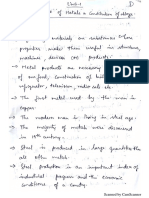 Unit-1
of Metals & Constitution of Alloys
materials are substances whose
properties make them useful in structures,
machines, devices (or) products.
→ Metal products are necessary
of our food, construction of
refrigerator, television, radio cells etc.
→ The first metal used by the man is
copper.
→ The modern man is living in steel age.
→ The majority of metals were discovered
in 19th century.
→ Steel is produced in large quantities than
all other metals.
→ Steel production is an important index of
industrial progress and the economic
conditions of a country.
Scanned by CamScanner